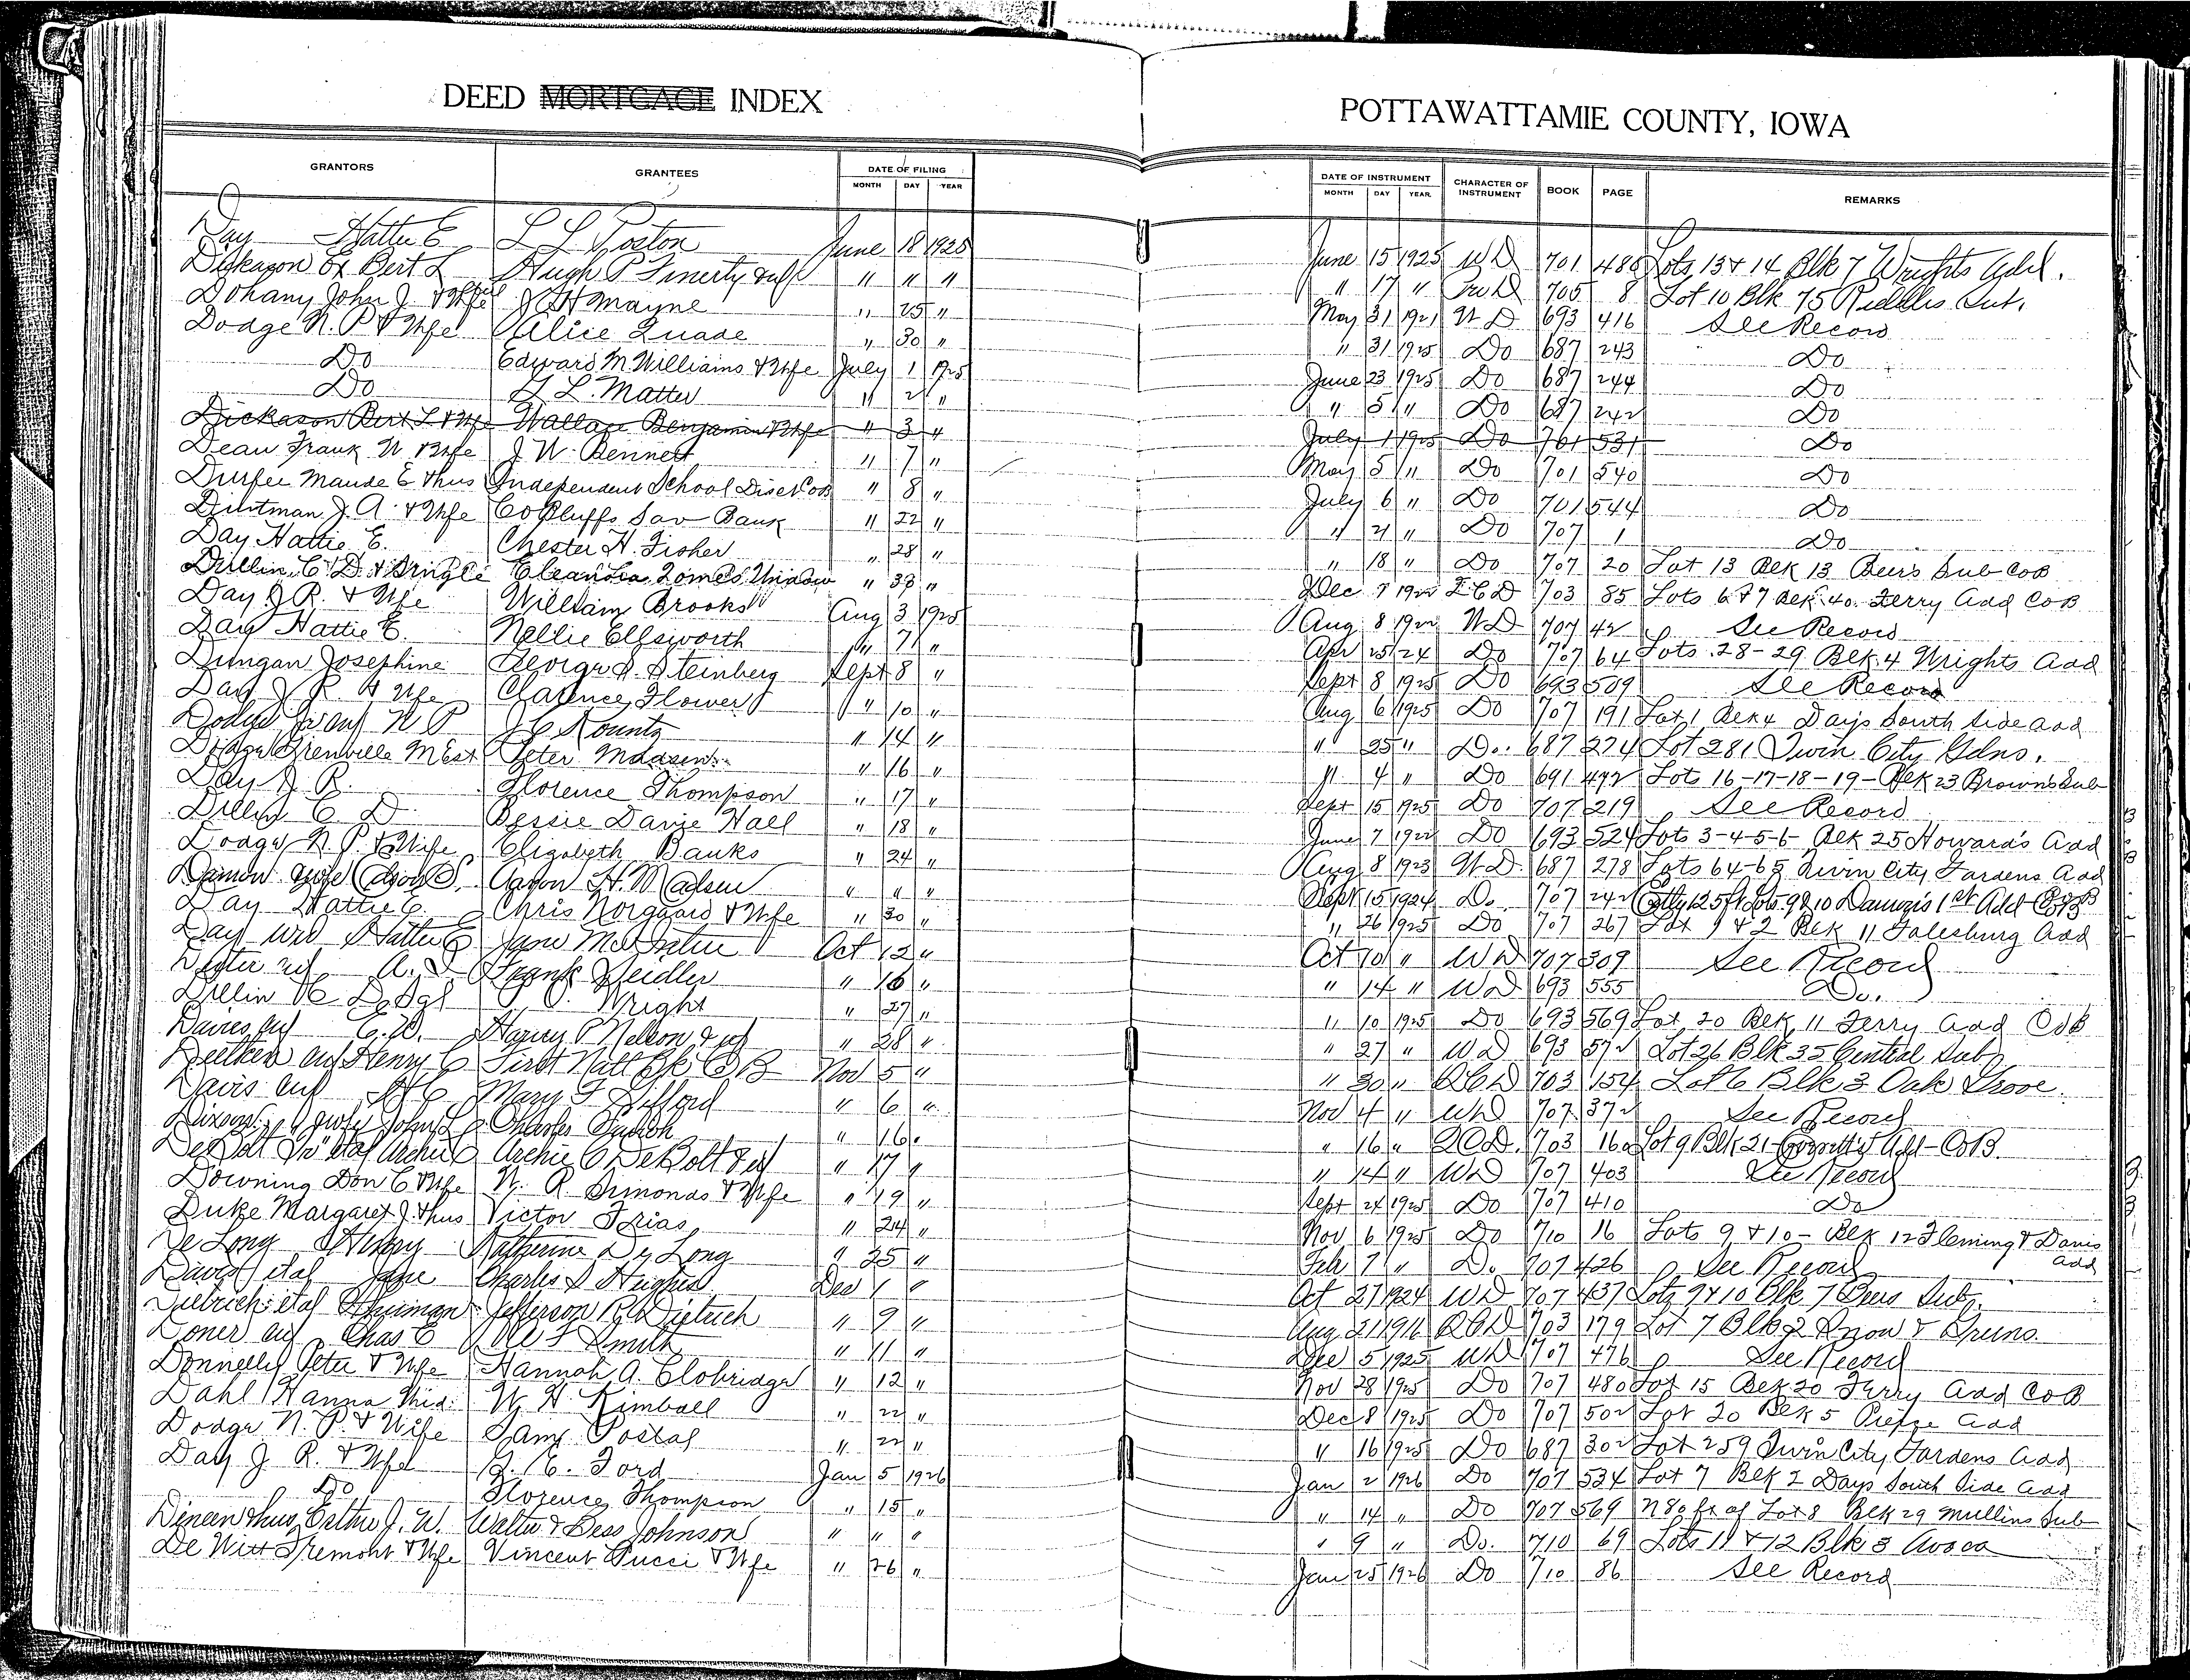 DEED MORTGAGE INDEX
POTTAWATTAMIE COUNTY, IOWA
GRANTORS GRANTEES DATE OF FILING MONTH DAY YEAR DATE OF INSTRUMENT MONTH DAY YEAR CHARACTER OF INSTRUMENT BOOK PAGE REMARKS
Day Hattie E L L Poston June 18 1925 June 15 1925 WD 701 480 Lots 13 & 14 Blk 7 Wrights Add.
Dickason Ex Bert L Hugh P Finerty & wf " " " " 17 " 705 8 Lot 10 Blk 75 Riddles Sub.
Dohany John J. & Wife J H Mayne " 25 " May 31 1921 WD 693 416 See Record
Dodge N. P & Wife Alice Quade " 30 " " 31 1925 Do 687 243 Do
Do Edward M Williams & Wife July 1 1925 June 23 1925 Do 687 244 Do
Do L. Matter " 2 " " 5 " Do 687 242 Do
Dickason Bert L & Wife Wallace Benjamin & Wife " 3 " July 1 1925 Do 701 531 Do
Dean Frank W & Wife J. W. Bennett " 7 " May 5 " Do 701 540 Do
Durfee Maude E & hus Independent School Dist CoB " 8 " July 6 " Do 701 544 Do
J. A. & Wife Co Bluffs Sav Bank " 22 " " 21 " Do 707 1 Do
Day Hattie E. Chester H. Fisher " 28 " " 18 " Do 707 20 Lot 13 Blk 13 Beers Sub CoB
Dillin, C. D. & Single " Dec 7 703 85 Lots 6 & 7 Blk 40 Ferry Add CoB
Day J R. & Wife William Brooks Aug 3 1925 Aug 8 1922 WD 707 42 See Record
Day Hattie E. Nellie Ellsworth " 7 " Apr 25 24 Do 707 64 Lots 28-29 Blk 4 Wrights Add
Dungan Josephine George A. Steinberg Sept 8 " Sept 8 1925 Do 693 509 See Record
Day J. R. & Wife Clarence Flower " 10 " Aug 6 1925 Do 707 191 Lot 1 Blk 4 Days South Side Add
Dodge N P J C Kountz " 14 " " 25 " Do. 687 274 Lot 281 Twin City Gdns.
Dodge Grenville M Est Peter Madsen " 16 " " 4 " Do 691 492 Lots 16-17-18-19- Blk 23 Browns Sub
Day J. R. Florence Thompson " 17 " Sept 15 1925 Do 707 219 See Record
Dillin C D Bessie Davie Hall " 18 " June 7 1922 Do 693 524 Lots 3-4-5-6- Blk 25 Howard's Add
Dodge N. P. & Wife Elizabeth Banks " 24 " Aug 8 1923 WD. 687 278 Lots 64-65 Twin City Gardens Add
Damon & wife Aaron H. Madsen " " " Sept 15 1924 Do. 707 242 Lots 9 & 10 1st Add CoB
Day Hattie E. Chris Norgaard & Wife " 30 " " 26 1925 Do 707 267 Lot 1 & 2 Blk 11 Galesburg Add
Day wid Hattie E Jane Oct 12 " Oct 10 " WD 707 309 See Record
A. Frank Zeidler " 16 " " 14 " WD 693 555 Do.
Dillin C. D. Sgl Wright " 27 " " 10 1925 Do 693 569 Lot 20 Blk 11 Ferry Add CoB
Davies & wf E. W. Harry P Nelson & wf " 28 " " 27 " WD 693 572 Lot 26 Blk 35 Central Sub
& wf Henry C First Natl Bk C B Nov 5 " " 30 " QCD 703 154 Lot 6 Blk 3 Oak Grove
Davis & wf Mary F Gifford " 6 " Nov 4 " WD 707 372 See Record
Dixon & wife John L Charles " 16 " " 16 " QCD. 703 160 Lot 9 Blk 21 Add - CoB
DeBolt etal Archie C Archie C DeBolt & wf " 17 " " 14 " WD 707 403 See Record
Downing Don C & Wife W. R. Simonds & Wife " 19 " Sept 24 1925 Do 707 410 Do
Duke Margaret J. & hus Victor Frias " 24 " Nov 6 1925 Do 710 16 Lots 9 & 10 - Blk 12 Fleming & Davis Add
De Long Henry Katherine De Long " 25 " Feb 7 " Do 707 426 See Record
David etal Jane Charles S Hughes Dec 1 " Oct 27 1924 WD 707 437 Lots 9 & 10 Blk 7 Beers Sub.
Dietrich etal Jefferson R Dietrich " 9 " Aug 21 1916 QCD 703 179 Lot 7 Blk 2 Snow &
Doner & wf Chas E F Smith " 11 " Dec 5 1925 WD 707 476 See Record
Donnelly Peter & Wife Hannah A. Clobridge " 12 " Nov 28 1925 Do 707 480 Lot 15 Blk 20 Ferry Add CoB
Dahl Hanna Wid. W. H. Kimball " 22 " Dec 8 1925 Do 707 502 Lot 20 Blk 5 Pierce Add
Dodge N. P. & Wife Sam Postal " 22 " " 16 1925 Do 687 302 Lot 259 Twin City Gardens Add
Day J. R. & Wife E. Ford Jan 5 1926 Jan 2 1926 Do 707 534 Lot 7 Blk 2 Days South Side Add
Do Florence Thompson " 15 " " 14 " Do 707 569 N 80 ft of Lot 8 Blk 29 Mullins Sub
Dineen & hus Esther J. W. Walter & Bess Johnson " " " " 9 " Do. 710 69 Lots 11 & 12 Blk 3 Avoca
De Witt Tremont & Wife Vincent Pucci & Wife " 26 " Jan 25 1926 Do 710 86 See Record